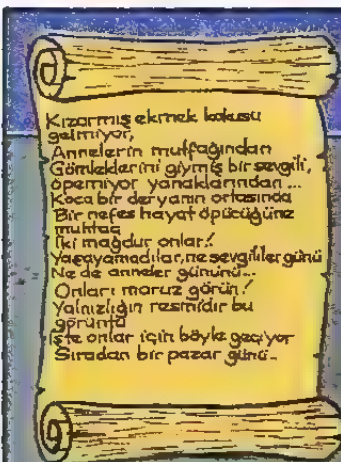 Kızarmış ekmek kokusu
gelmiyor,
Annelerin mutfağından
Gömleklerini giymiş bir sevgili,
öpemiyor yanaklarından...
Koca bir deryanın ortasında
Bir nefes hayat öpücüğüne
muhtaç
İki mağdur onlar!
Yaşayamadılar, ne sevgililer günü
Ne de anneler gününü...
Onları maruz görün!
Yalnızlığın resmidir bu
görüntü
İşte onlar için böyle geçiyor
Sıradan bir pazar günü...